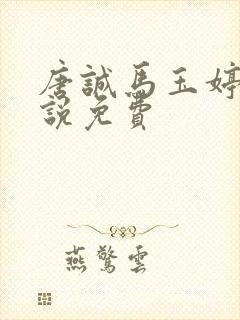 唐誠馬玉婷
說免費
燕驚雲